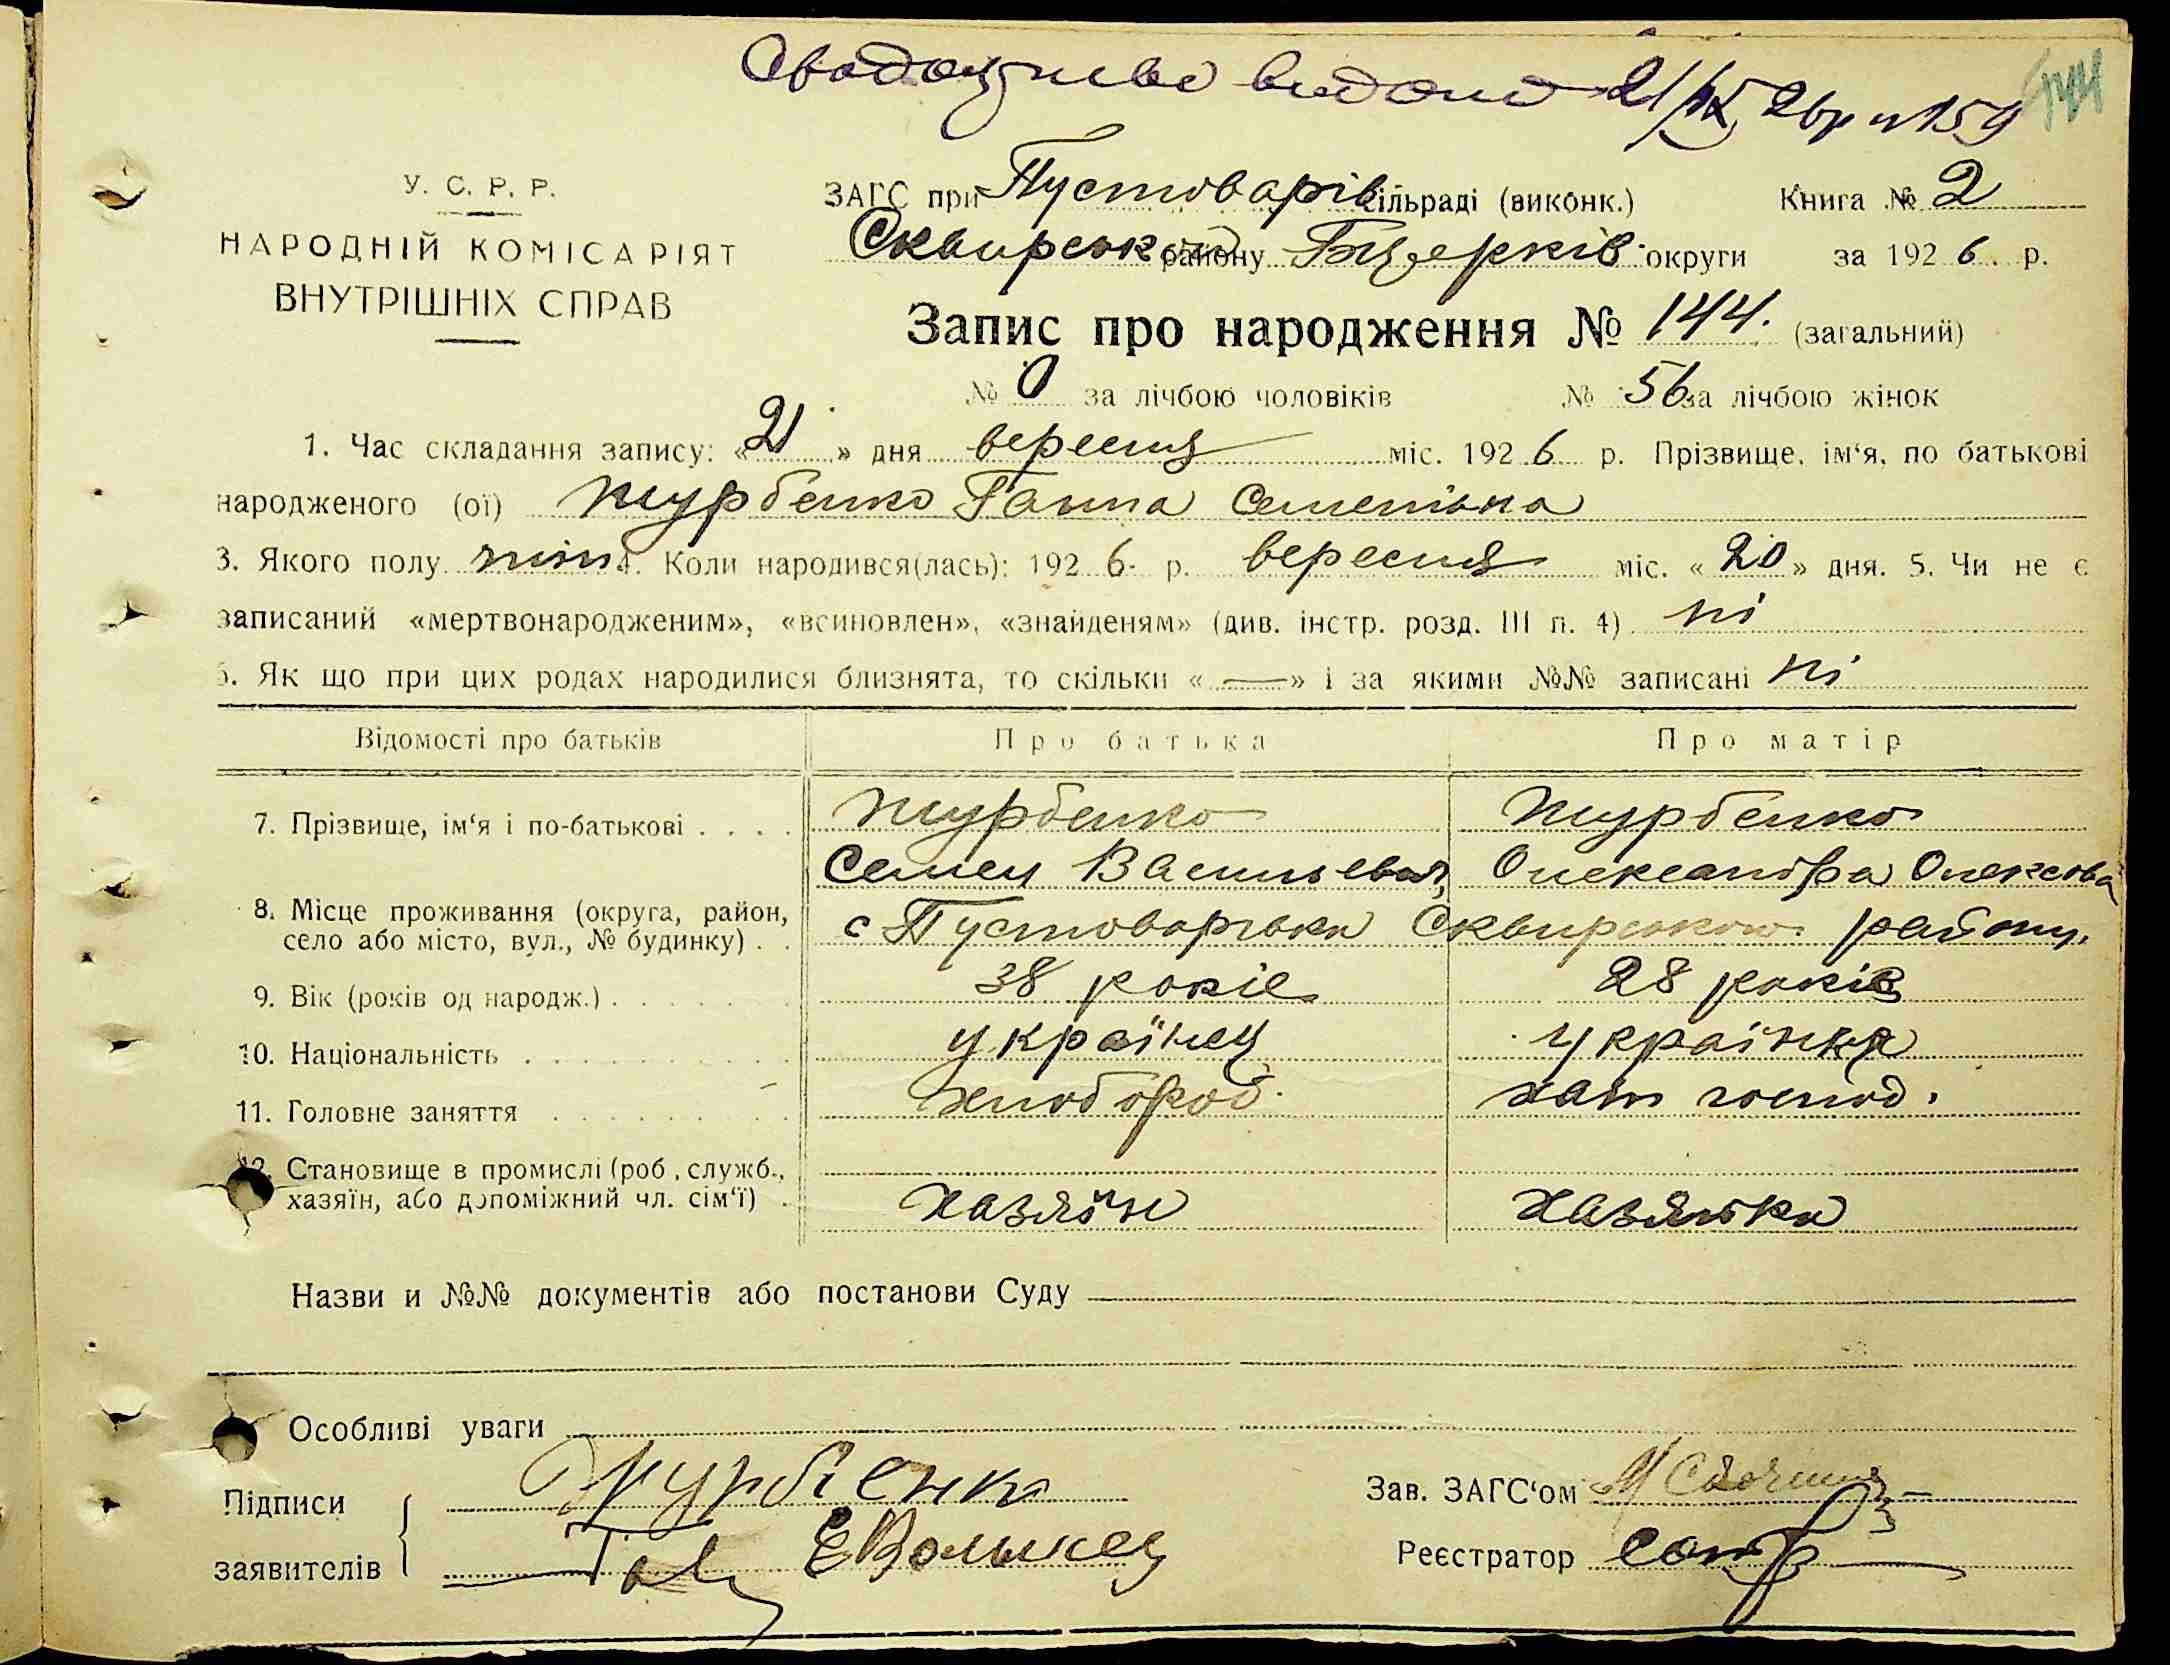 Свадоцтво видано 21/IX 26 р н 159
144
У. С. Р. Р.
НАРОДНІЙ КОМІСАРІЯТ
ВНУТРІШНІХ СПРАВ
ЗАГС при Пустоварів сільраді (виконк.) Книга № 2
Сквирськ району Б.Церків округи за 1926 р.
Запис про народження № 144. (загальний)
№ 0 за лічбою чоловіків № 56 за лічбою жінок
1. Час складання запису: «21» дня вересня міс. 1926 р. Прізвище, ім‘я, по батькові
народженого (ої) Журбенко Ганна Семенівна
3. Якого полу жін 4. Коли народився(лась): 1926 р. вересня міс. «20» дня. 5. Чи не є
записаний «мертвонародженим», «всиновлен», «знайденям» (див. інстр. розд. III п. 4) ні
6. Як що при цих родах народилися близнята, то скільки «—» і за якими №№ записані ні
Відомості про батьків Про батька Про матір
7. Прізвище, ім‘я і по-батькові . . . . Журбенко Журбенко
Семен Васильевич Олександра Олексова
8. Місце проживання (округа, район,
село або місто, вул., № будинку) . . с Пустоварівка Сквирського району.
9. Вік (років од народж.) . . . . . . 38 років 28 років
10. Національність . . . . . . . . . українец українка
11. Головне заняття . . . . . . . . хлібороб. хат господ.
12. Становище в промислі (роб., служб.,
хазяїн, або допоміжний чл. сім‘ї) . хазяїн хазяйка
Назви и №№ документів або постанови Суду
Особливі уваги
Підписи Журбенко Зав. ЗАГС‘ом
заявителів ЕВолынец Реєстратор